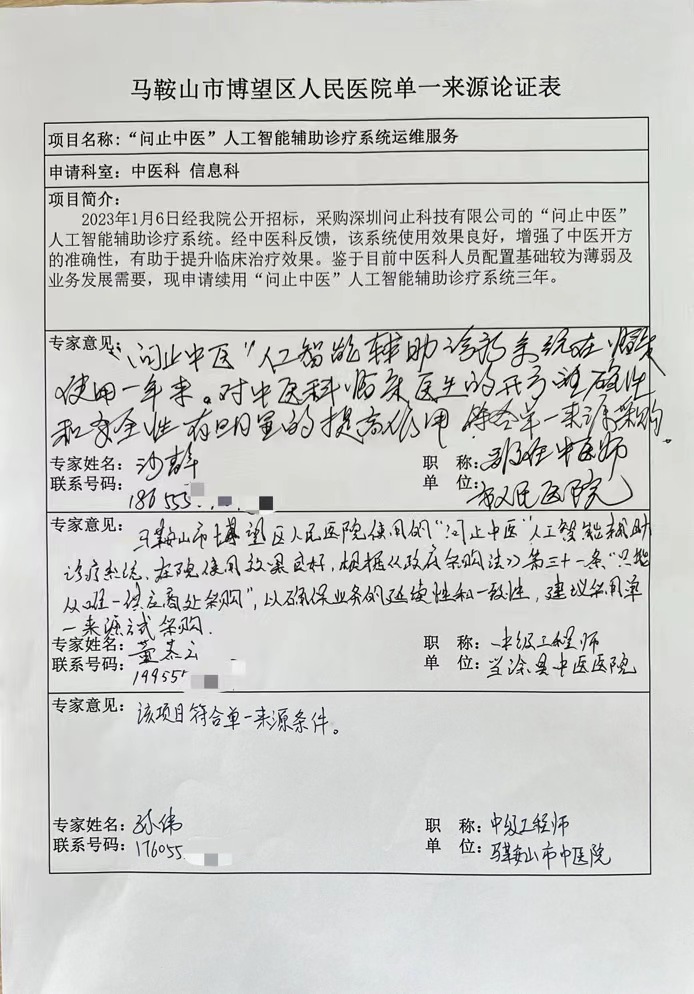 马鞍山市博望区人民医院单一来源论证表
项目名称:“问止中医”人工智能辅助诊疗系统运维服务
申请科室:中医科 信息科
项目简介:
2023年1月6日经我院公开招标，采购深圳问止科技有限公司的“问止中医”
人工智能辅助诊疗系统。经中医科反馈，该系统使用效果良好，增强了中医开方
的准确性，有助于提升临床治疗效果。鉴于目前中医科人员配置基础较为薄弱及
业务发展需要，现申请续用“问止中医”人工智能辅助诊疗系统三年。
专家意见:“问止中医”人工智能辅助诊疗系统在临床
使用一年来。对中医科临床医生的开方准确性
和安全性有明显的提高作用 符合单一来源采购。
专家姓名:沙 职 称:主任中医师
联系号码: 186555 单 位:市人民医院
专家意见:马鞍山市博望区人民医院使用的“问止中医”人工智能辅助
诊疗系统，在院使用效果良好，根据《政府采购法》第三十一条“只能
从唯一供应商处采购”，以确保业务的延续性和一致性，建议采用单
一来源方式采购.
专家姓名:董 职 称:中级工程师
联系号码: 19955 单 位:当涂县中医医院
专家意见:该项目符合单一来源条件。
专家姓名:孙伟 职 称:中级工程师
联系号码:176055 单 位:马鞍山市中医院